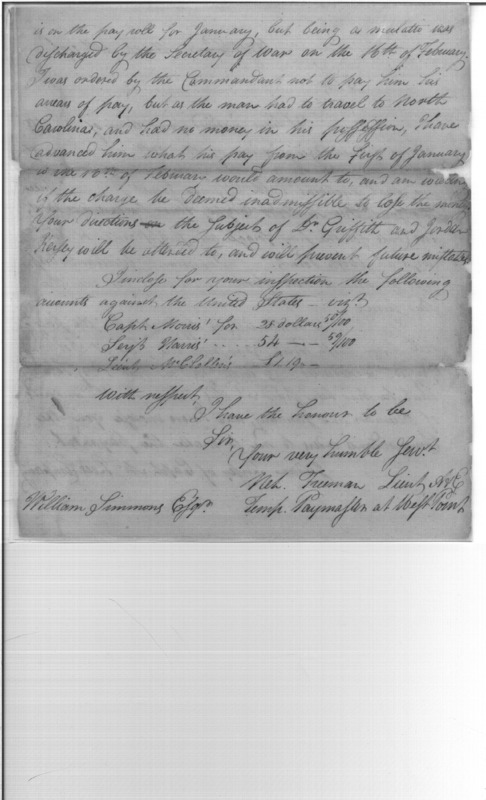 is on the pay roll for January, but being a mulatto was
discharged by the Secretary of war on the 16th of February.
I was ordered by the Commandant not to pay him his
arears of pay, but as the man had to travel to North
Carolina, and had no money in his possession, I have
advanced him what his pay from the first of January
to the 16th of February would amount to, and am
if the charge be deemed inadmissible to lose the
Your directions on the subjects of Dr Griffith and Jordan
Kersey will be attended to, and will prevent future mistakes.
I inclose for your inspection the following
accounts against the United States - vizt
Captn Morris' for 28 dollars 50/100
Serjt Harris' .... 54 — - 50/100
Lieut
with respect
I have the honour to be
Sir,
Your very humble Servt
Neh. Freeman Lieut A&E
William Simmons Esqr. Temp. Paymaster at West Point